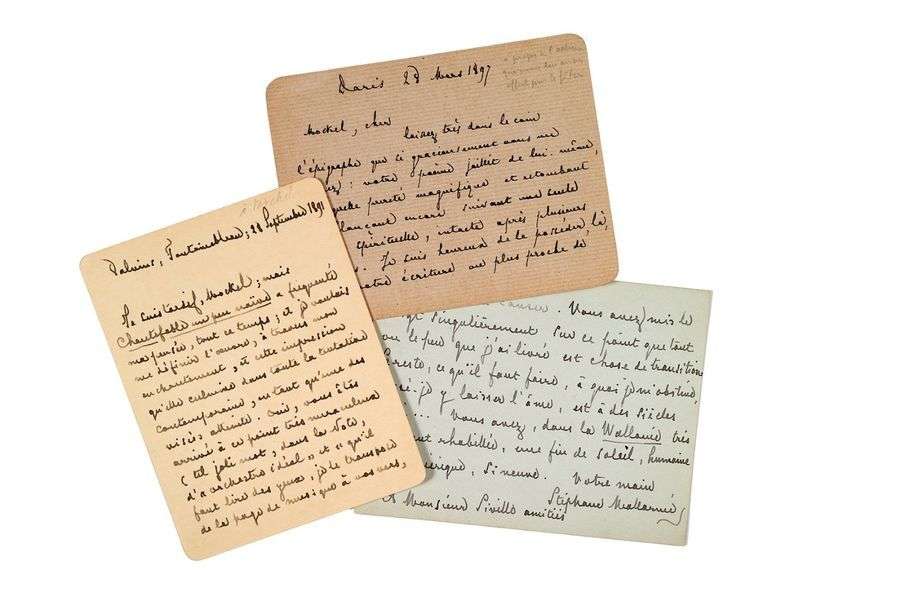 Paris 23 Mars 1897
à propos de l'
Mockel, cher
laissez très dans le coin
l'épigraphe que si gracieusement vous me
: votre poème jaillit de lui-même,
quelle pureté magnifique et retombant
encore suivant une seule
spirituelle, intacte après plusieurs
. Je suis heureux de la posséder là,
votre écriture au plus proche de
Valvins, Fontainebleau; 28 Septembre 1891
Je suis tardif, Mockel; mais
Chantefable un peu naïve a fréquenté
ma pensée, tout ce temps; et je voulais
me définir l'amour, à travers mon
enchantement, et cette impression
qu'elle culmine dans toute la tentation
contemporaine, en tant qu'une des
visées atteinte. Oui, vous êtes
arrivé à ce point très miraculeux
( tel joli mot, dans la Note,
d'"orchestre idéal" et "qu'il
faut lire des yeux, je le transpose
de la page de musique à vos vers,
causer. Vous avez mis le
doigt singulièrement sur ce point que tout
le peu que j'ai livré est chose de transition
reste, ce qu'il faut faire, à quoi je m'obstine,
-je y laisser l'âme, est à des siècles
... Vous avez, dans la Wallonie très
rhabillée, une fin de soleil, humaine
, si neuve. Votre main
Stéphane Mallarmé
À Monsieur Siville amitiés